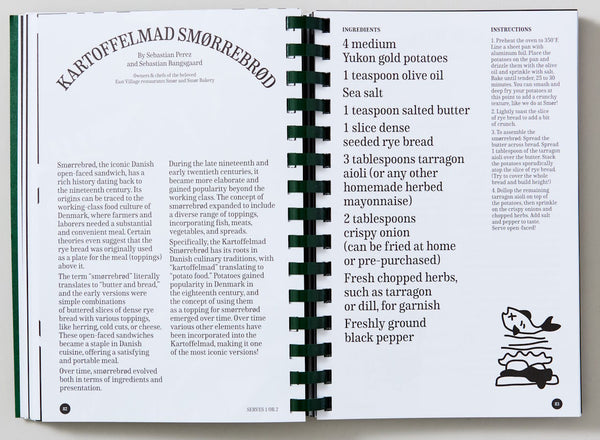 KARTOFFELMAD SMØRREBRØD
By Sebastian Perez
and Sebastian Bangsgaard
Owners & chefs of the beloved
East Village restaurants Smør and Smør Bakery
Smørrebrød, the iconic Danish
open-faced sandwich, has a
rich history dating back to
the nineteenth century. Its
origins can be traced to the
working-class food culture of
Denmark, where farmers and
laborers needed a substantial
and convenient meal. Certain
theories even suggest that the
rye bread was originally used
as a plate for the meal (toppings)
above it.
The term “smørrebrød” literally
translates to “butter and bread,”
and the early versions were
simple combinations
of buttered slices of dense rye
bread with various toppings,
like herring, cold cuts, or cheese.
These open-faced sandwiches
became a staple in Danish
cuisine, offering a satisfying
and portable meal.
Over time, smørrebrød evolved
both in terms of ingredients and
presentation.
During the late nineteenth and
early twentieth centuries, it
became more elaborate and
gained popularity beyond the
working class. The concept of
smørrebrød expanded to include
a diverse range of toppings,
incorporating fish, meats,
vegetables, and spreads.
Specifically, the Kartoffelmad
Smørrebrød has its roots in
Danish culinary traditions, with
“kartoffelmad” translating to
“potato food.” Potatoes gained
popularity in Denmark in
the eighteenth century, and
the concept of using them
as a topping for smørrebrød
emerged over time. Over time
various other elements have
been incorporated into the
Kartoffelmad, making it one
of the most iconic versions!
82
SERVES 1 OR 2
INGREDIENTS
4 medium
Yukon gold potatoes
1 teaspoon olive oil
Sea salt
1 teaspoon salted butter
1 slice dense
seeded rye bread
3 tablespoons tarragon
aioli (or any other
homemade herbed
mayonnaise)
2 tablespoons
crispy onion
(can be fried at home
or pre-purchased)
Fresh chopped herbs,
such as tarragon
or dill, for garnish
Freshly ground
black pepper
INSTRUCTIONS
1. Preheat the oven to 350°F.
Line a sheet pan with
aluminum foil. Place the
potatoes on the pan and
drizzle them with the olive
oil and sprinkle with salt.
Bake until tender, 25 to 30
minutes. You can smash and
deep fry your potatoes at
this point to add a crunchy
texture, like we do at Smør!
2. Lightly toast the slice
of rye bread to add a bit
of crunch.
3. To assemble the
smørrebrød: Spread the
butter across bread. Spread
1 tablespoon of the tarragon
aioli over the butter. Stack
the potatoes sporadically
atop the slice of rye bread.
(Try to cover the whole
bread and build height!)
4. Dollop the remaining
tarragon aioli on top of
the potatoes, then sprinkle
on the crispy onions and
chopped herbs. Add salt
and pepper to taste.
Serve open-faced!
83